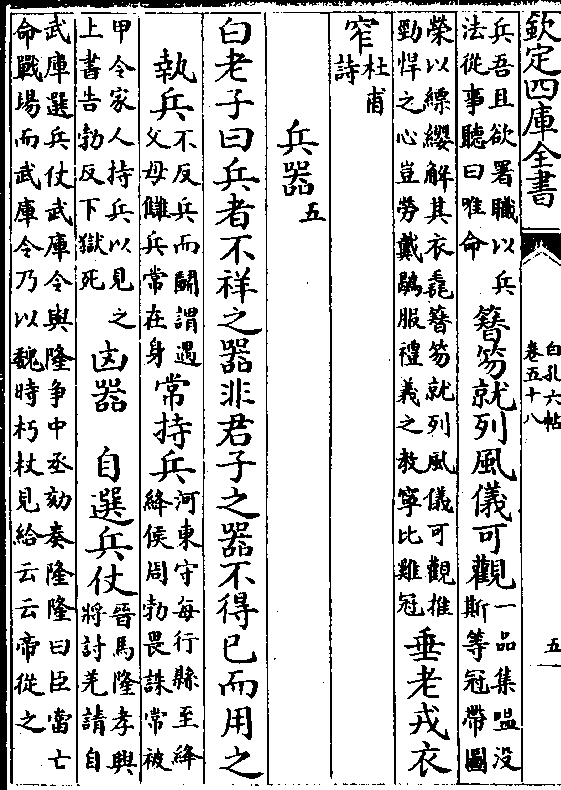 欽定四庫全書
白孔六帖
卷五十八
五
兵吾且欲署職以兵
法從事聽曰唯命
簪笏就列風儀可觀
一品集嗢没
斯等冠帶圖
榮以縹纓解其衣毳簪笏就列風儀可觀推
勁悍之心豈勞戴鶡服禮義之教寧比雞冠
垂老戎衣
窄
杜甫
詩
兵器五
白老子曰兵者不祥之器非君子之器不得已而用之
執兵
不反兵而鬭謂遇
父母讎兵常在身
常持兵
河東守每行縣至絳
絳侯周勃畏誅常被
甲令家人持兵以見之
上書告勃反下獄死
凶器
自選兵仗
晉馬隆孝興
將討羌請自
武庫選兵仗武庫令與隆争中丞劾奏隆隆曰臣當亡
命戰場而武庫令乃以魏時朽杖見給云云帝從之